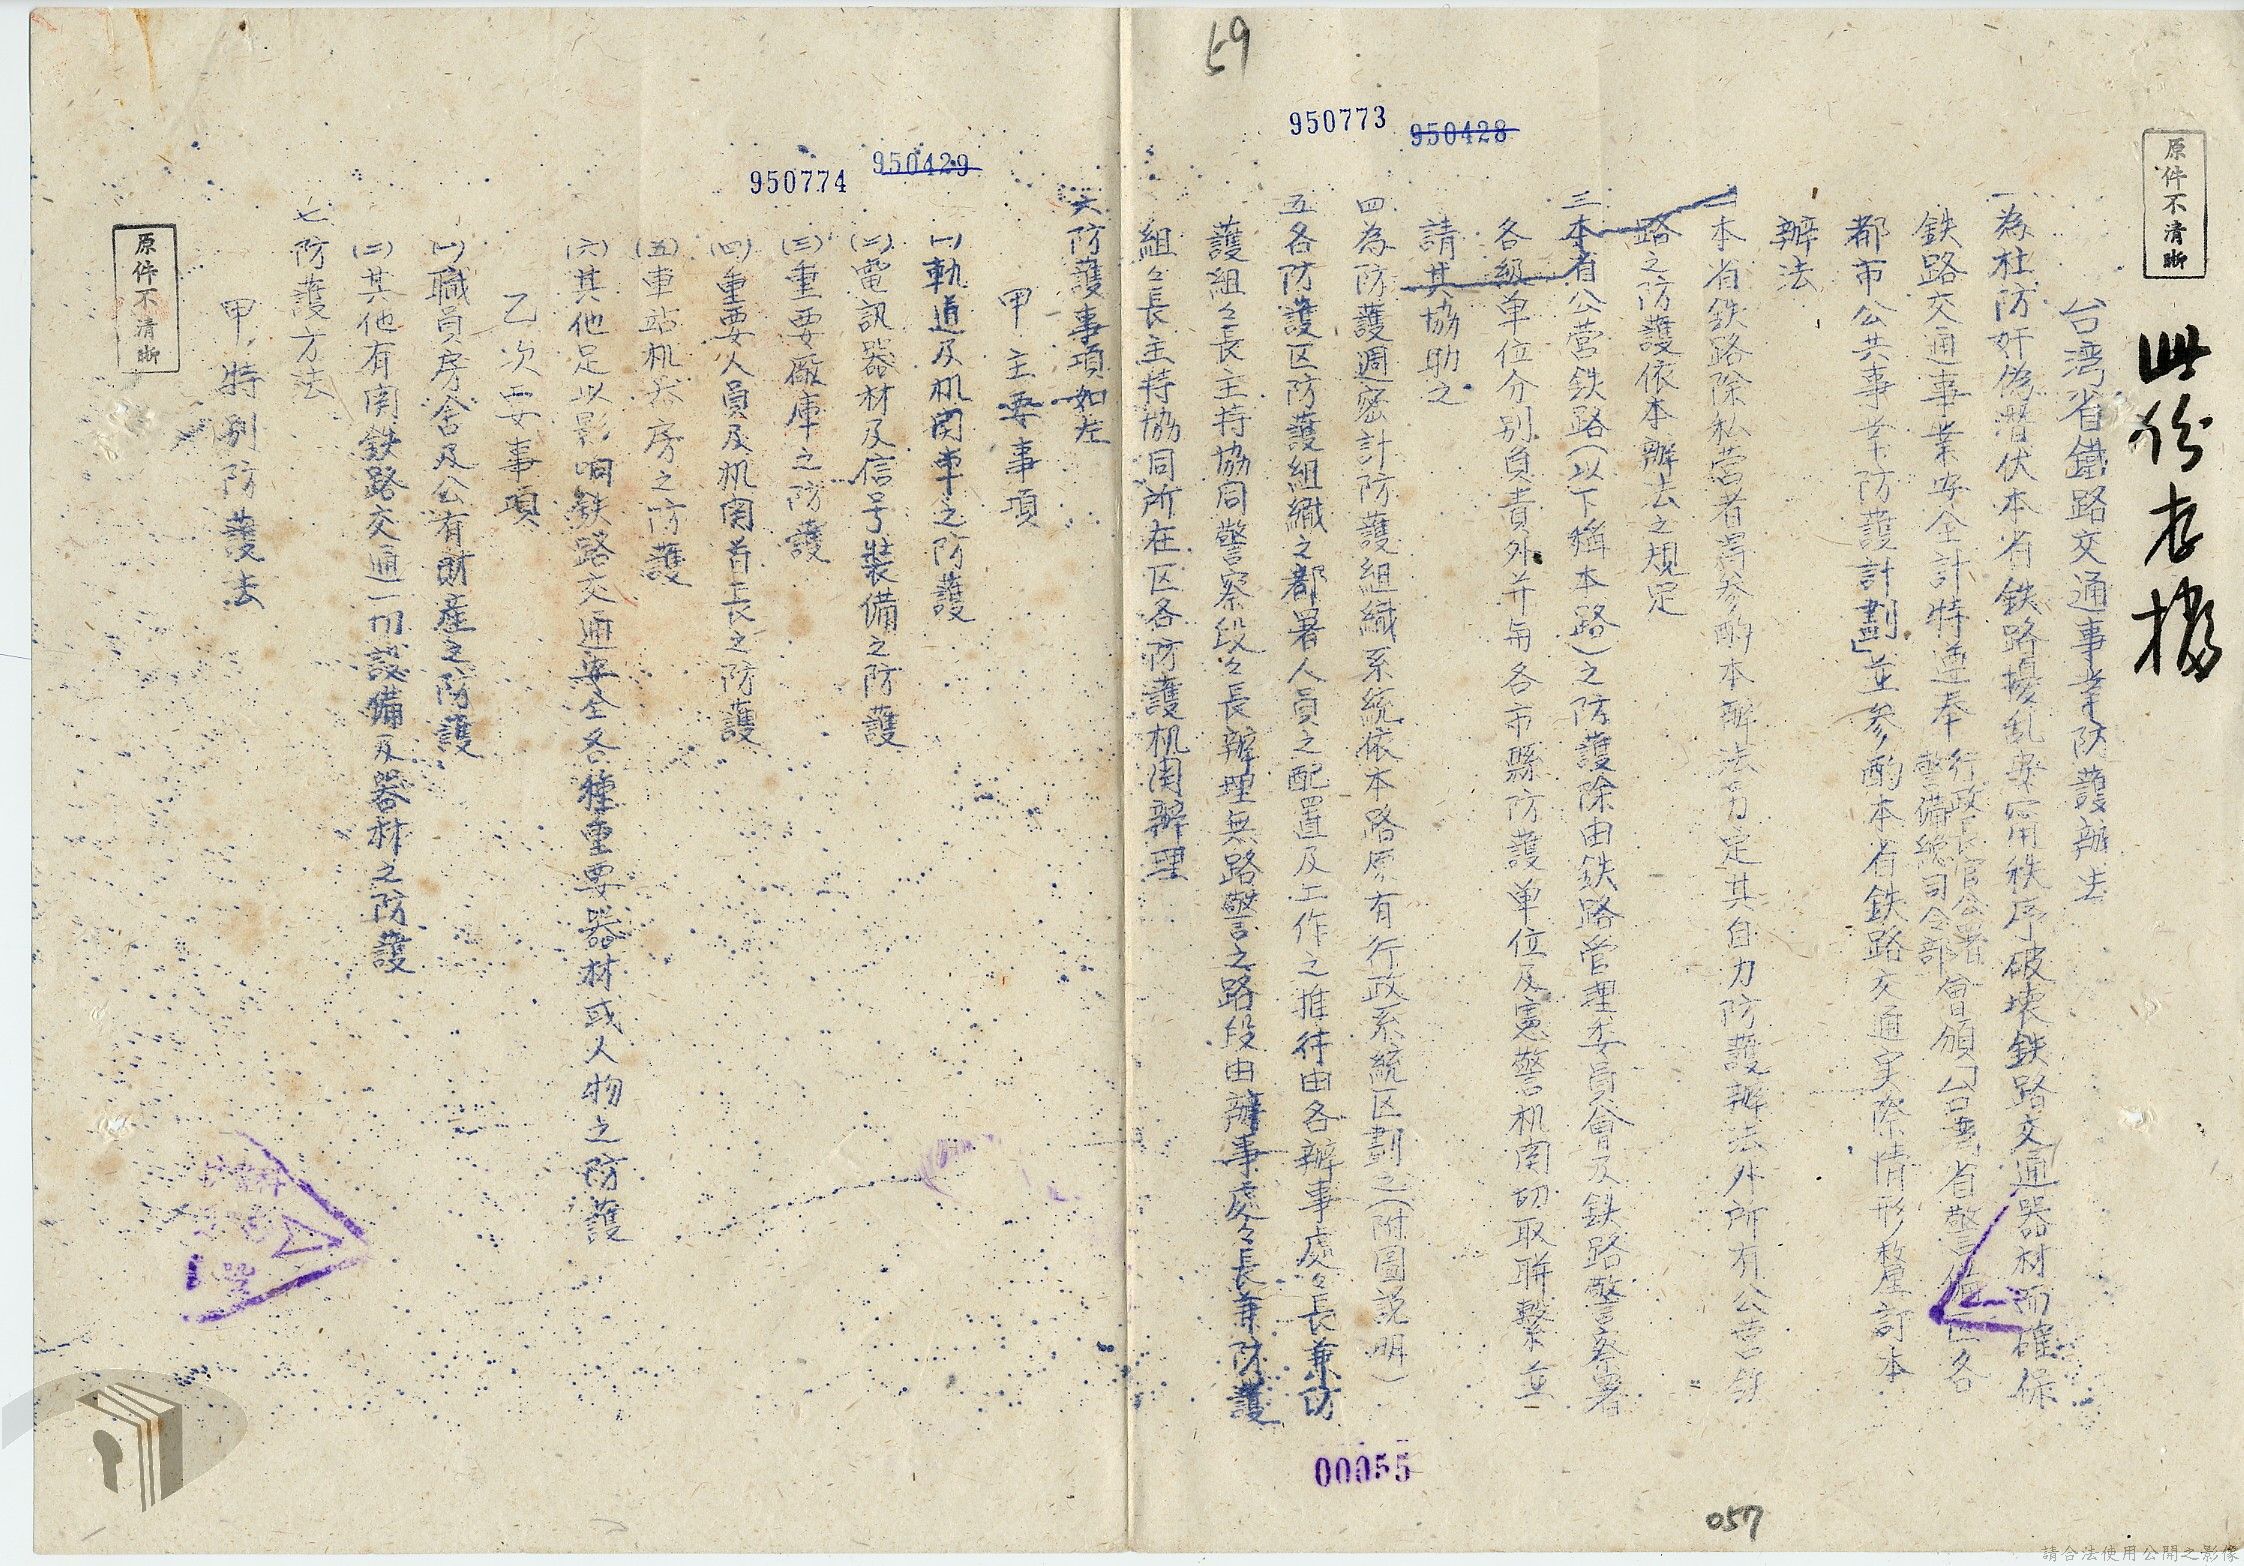 59
950773
950428
原件不清晰
此份存檔
台湾省鐵路交通事業防護辦法
一為杜防奸偽潛伏本省鉄路擾乱安甯秩序破壊鉄路交通器材而確保
鉄路交通事業安全計特遵奉行政長官公署警備總司令部會頒「台湾省警備区各
都市公共事業防護計劃」並参酌本省鉄路交通実際情形整厘訂本
辦法
二本省鉄路除私营者需参酌本辦法另定其自力防護辦法外所有公营鉄
路之防護依本辦法之規定
三本省公营鉄路(以下稱本路)之防護除由鉄路管理委員會及鉄路警察署
各級单位分别負責外并与各市縣防護单位及憲警机関切取聨繫並
請其協助之
四為防護週密計防護組織系統依本路原有行政系統区劃之(附圖説明)
五各防護区防護組織之都署人員之配置及工作之推行由各辦事處々長兼防
護組々長主持協同警察段々長辦理無路警之路段由辦事處々長兼防護
組々長主持協同所在区各防護机関辦理
950429
950774
六防護事項如左
甲主要事項
(一)軌道及机関車之防護
(二)電訊器材及信号裝備之防護
(三)重要廠庫之防護
(四)重要人員及机関首長之防護
(五)車站机房之防護
(六)其他足以影响鉄路交通安全各種重要器材或人物之防護
乙次要事項
(一)職員房舍及公有財產之防護
(二)其他有関鉄路交通一切設備及器材之防護
七防護方法
甲、特别防護法
原件不清晰
00055
057
請合法使用公開之影像